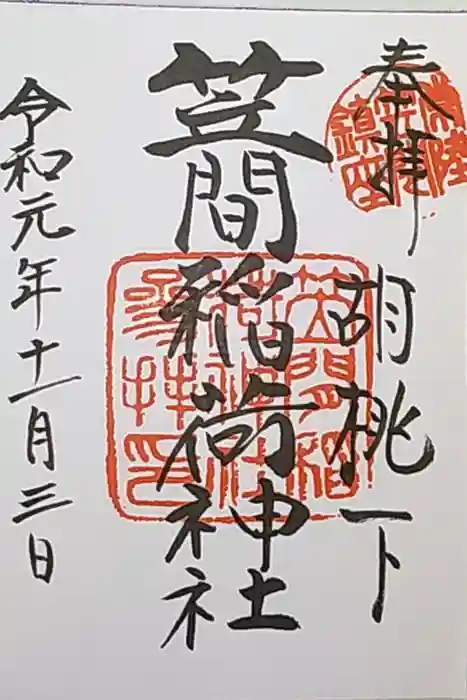 奉拝
胡桃下
笠間稲荷神社
令和元年十一月三日
常陸
笠間
鎮座
笠間稲
荷神社
参拝印